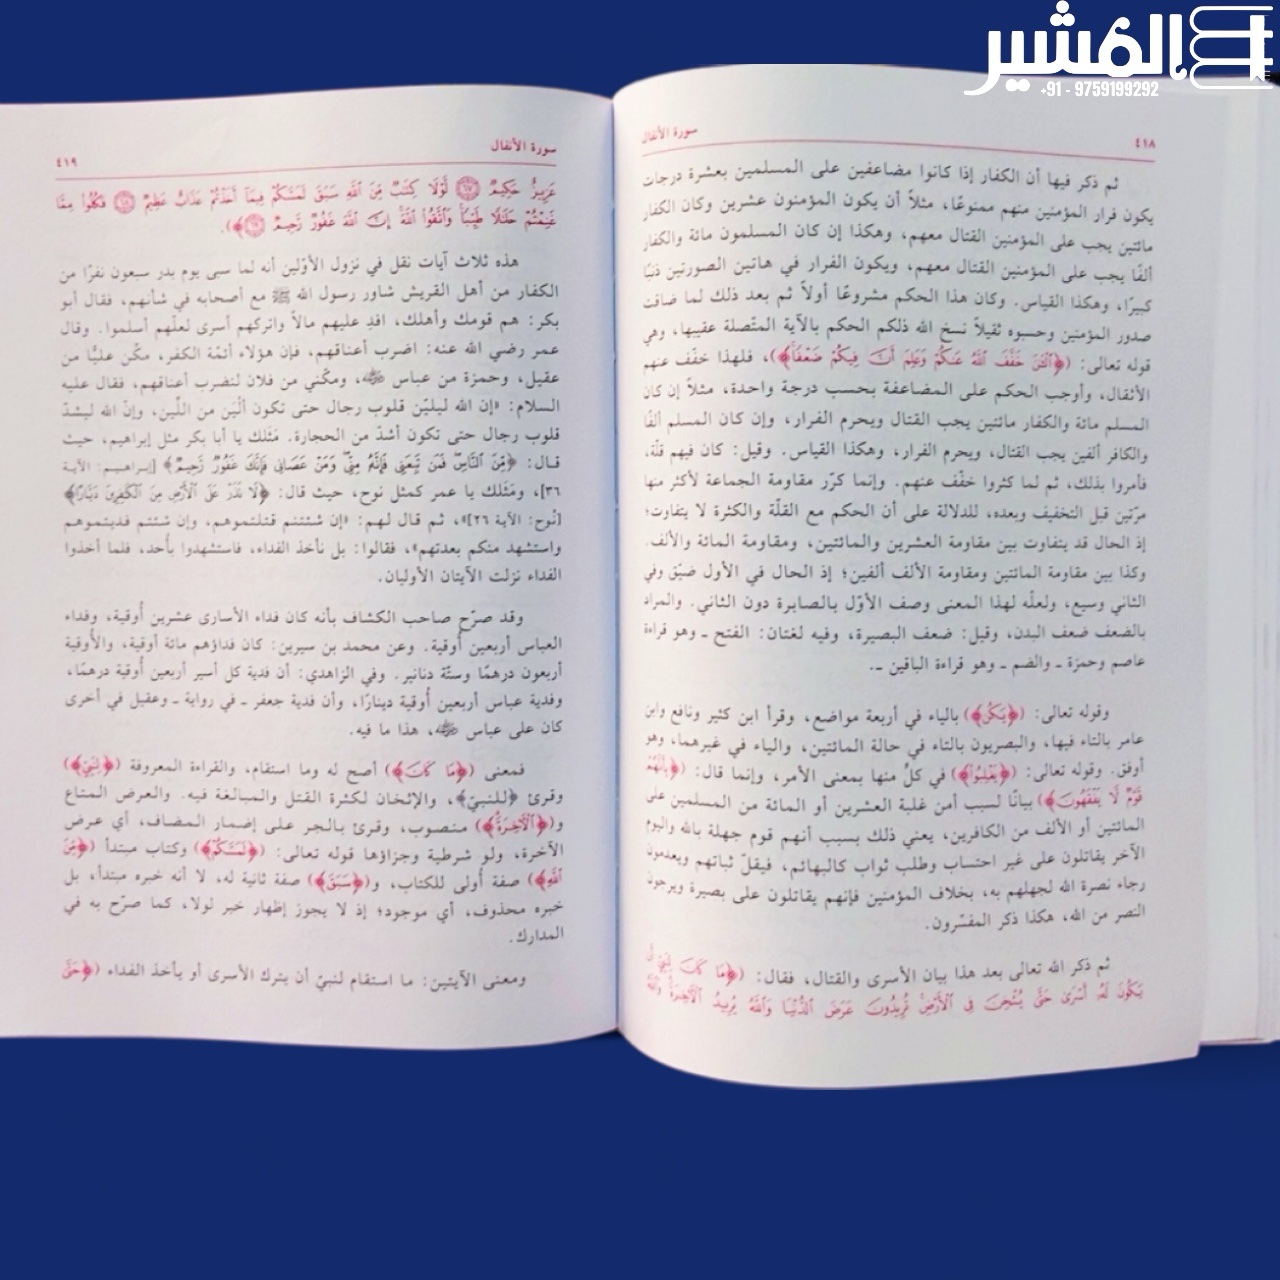 المشير
+91 - 9759199292
٤١٨
سورة الأنفال
ثم ذكر فيها أن الكفار إذا كانوا مضاعفين على المسلمين بعشرة درجات
يكون فرار المؤمنين منهم ممنوعًا، مثلاً أن يكون المؤمنون عشرين وكان الكفار
مائتين يجب على المؤمنين القتال معهم، وهكذا إن كان المسلمون مائة والكفار
ألفًا يجب على المؤمنين القتال معهم، ويكون الفرار في هاتين الصورتين ذنبًا
كبيرًا، وهكذا القياس. وكان هذا الحكم مشروعًا أولاً ثم بعد ذلك لما ضاقت
صدور المؤمنين وحسبوه ثقيلاً نسخ الله ذلكم الحكم بالآية المتّصلة عقيبها، وهي
قوله تعالى: (﴿ٱلْـَٰٔنَ خَفَّفَ ٱللَّهُ عَنكُمْ وَعَلِمَ أَنَّ فِيكُمْ ضَعْفًا﴾)، فلهذا خفّف عنهم
الأثقال، وأوجب الحكم على المضاعفة بحسب درجة واحدة، مثلاً إن كان
المسلم مائة والكفار مائتين يجب القتال ويحرم الفرار، وإن كان المسلم ألفًا
والكافر ألفين يجب القتال، ويحرم الفرار، وهكذا القياس. وقيل: كان فيهم قلّة،
فأمروا بذلك، ثم لما كثروا خفّف عنهم. وإنما كرّر مقاومة الجماعة لأكثر منها
مرّتين قبل التخفيف وبعده، للدلالة على أن الحكم مع القلّة والكثرة لا يتفاوت؛
إذ الحال قد يتفاوت بين مقاومة العشرين والمائتين، ومقاومة المائة والألف.
وكذا بين مقاومة المائتين ومقاومة الألف ألفين؛ إذ الحال في الأول ضيّق وفي
الثاني وسيع، ولعلّه لهذا المعنى وصف الأوّل بالصابرة دون الثاني. والمراد
بالضعف ضعف البدن، وقيل: ضعف البصيرة، وفيه لغتان: الفتح ـ وهو قراءة
عاصم وحمزة ـ والضم ـ وهو قراءة الباقين ـ.
وقوله تعالى: (﴿يَكُن﴾) بالياء في أربعة مواضع، وقرأ ابن كثير ونافع وابن
عامر بالتاء فيها، والبصريون بالتاء في حالة المائتين، والياء في غيرهما، وهو
أوفق. وقوله تعالى: (﴿يَغْلِبُوا۟﴾) في كلٍّ منها بمعنى الأمر، وإنما قال: (﴿بِأَنَّهُمْ
قَوْمٌ لَّا يَفْقَهُونَ﴾) بيانًا لسبب أمن غلبة العشرين أو المائة من المسلمين على
المائتين أو الألف من الكافرين، يعني ذلك بسبب أنهم قوم جهلة بالله واليوم
الآخر يقاتلون على غير احتساب وطلب ثواب كالبهائم، فيقلّ ثباتهم ويعدمون
رجاء نصرة الله لجهلهم به، بخلاف المؤمنين فإنهم يقاتلون على بصيرة ويرجون
النصر من الله، هكذا ذكر المفسّرون.
ثم ذكر الله تعالى بعد هذا بيان الأسرى والقتال، فقال: (﴿مَا كَانَ لِنَبِىٍّ أَن
يَكُونَ لَهُۥٓ أَسْرَىٰ حَتَّىٰ يُثْخِنَ فِى ٱلْأَرْضِ تُرِيدُونَ عَرَضَ ٱلدُّنْيَا وَٱللَّهُ يُرِيدُ ٱلْـَٔاخِرَةَ وَٱللَّهُ
سورة الأنفال
٤١٩
عَزِيزٌ حَكِيمٌ ٦٧ لَّوْلَا كِتَٰبٌ مِّنَ ٱللَّهِ سَبَقَ لَمَسَّكُمْ فِيمَآ أَخَذْتُمْ عَذَابٌ عَظِيمٌ ٦٨ فَكُلُوا۟ مِمَّا
غَنِمْتُمْ حَلَٰلًا طَيِّبًا وَٱتَّقُوا۟ ٱللَّهَ إِنَّ ٱللَّهَ غَفُورٌ رَّحِيمٌ ٦٩﴾).
هذه ثلاث آيات نقل في نزول الأوّلين أنه لما سبى يوم بدر سبعون نفرًا من
الكفار من أهل القريش شاور رسول الله ﷺ مع أصحابه في شأنهم، فقال أبو
بكر: هم قومك وأهلك، افدِ عليهم مالاً واتركهم أسرى لعلّهم أسلموا. وقال
عمر رضي الله عنه: اضرب أعناقهم، فإن هؤلاء أئمّة الكفر، مكّن عليًّا من
عقيل، وحمزة من عباس ﷺ، ومكّني من فلان لنضرب أعناقهم، فقال عليه
السلام: «إن الله ليليّن قلوب رجال حتى تكون ألْيَن من اللَّين، وإنّ الله ليشدّ
قلوب رجال حتى تكون أشدّ من الحجارة. مَثَلك يا أبا بكر مثل إبراهيم، حيث
قال: ﴿مِّنَ ٱلنَّاسِ فَمَن تَبِعَنِى فَإِنَّهُۥ مِنِّى وَمَنْ عَصَانِى فَإِنَّكَ غَفُورٌ رَّحِيمٌ﴾ [إبراهيم: الآية
٣٦]، ومَثَلك يا عمر كمثل نوح، حيث قال: ﴿لَا تَذَرْ عَلَى ٱلْأَرْضِ مِنَ ٱلْكَٰفِرِينَ دَيَّارًا﴾
[نُوح: الآية ٢٦]»، ثم قال لهم: «إن شئتنم قتلتموهم، وإن شئتم فديتموهم
واستشهد منكم بعدتهم»، فقالوا: بل نأخذ الفداء، فاستشهدوا بأُحد، فلما أخذوا
الفداء نزلت الآيتان الأوليان.
وقد صرّح صاحب الكشاف بأنه كان فداء الأسارى عشرين أُوقية، وفداء
العباس أربعين أُوقية. وعن محمد بن سيرين: كان فداؤهم مائة أوقية، والأُوقية
أربعون درهمًا وستّة دنانير. وفي الزاهدي: أن فدية كل أسير أربعين أوقية درهمًا،
وفدية عباس أربعين أُوقية دينارًا، وأن فدية جعفر ـ في رواية ـ وعقيل في أخرى
كان على عباس ﷺ، هذا ما فيه.
فمعنى (﴿مَا كَانَ﴾) أصح له وما استقام، والقراءة المعروفة (﴿لِنَبِىٍّ﴾)
وقرئ ﴿للنبيّ﴾، والإثخان لكثرة القتل والمبالغة فيه. والعرض المتاع
و(﴿ٱلْـَٔاخِرَةَ﴾) منصوب، وقرئ بالجر على إضمار المضاف، أي عرض
الآخرة، ولو شرطية وجزاؤها قوله تعالى: (﴿لَمَسَّكُمْ﴾) وكتاب مبتدأ (﴿مِّنَ
ٱللَّهِ﴾) صفة أُولى للكتاب، و(﴿سَبَقَ﴾) صفة ثانية له، لا أنه خبره مبتدأ، بل
خبره محذوف، أي موجود؛ إذ لا يجوز إظهار خبر لولا، كما صرّح به في
المدارك.
ومعنى الآيتين: ما استقام لنبيّ أن يترك الأسرى أو يأخذ الفداء (﴿حَتَّىٰ